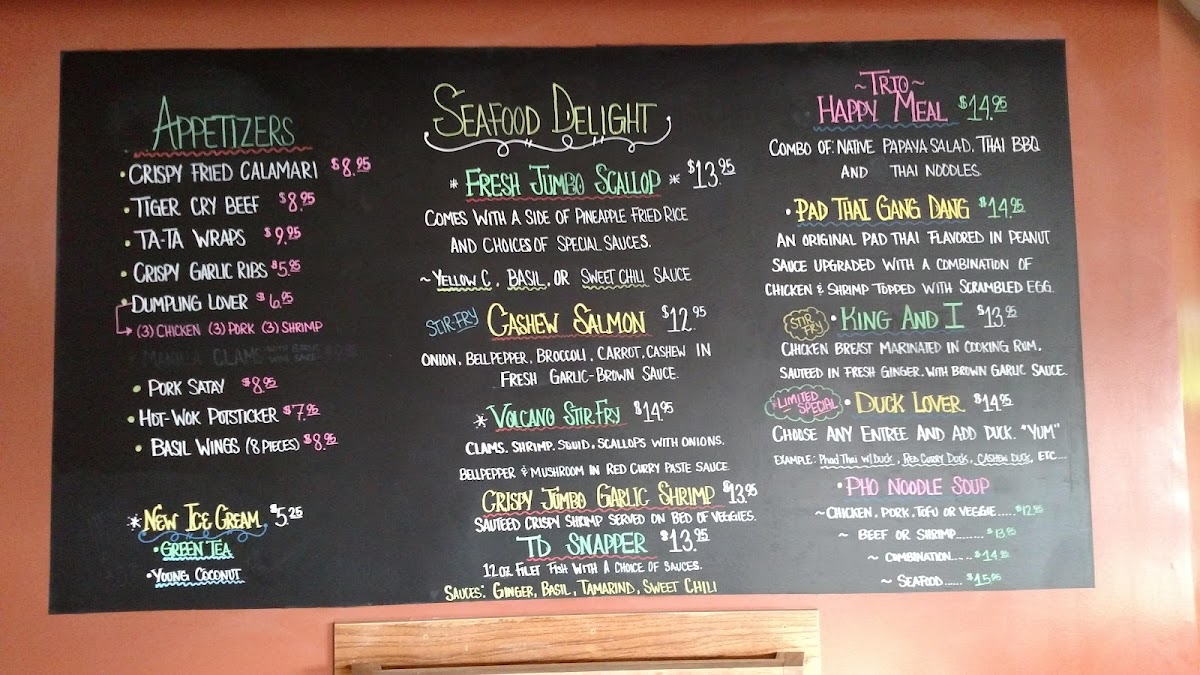 APPETIZERS
• CRISPY FRIED CALAMARI $8.95
• TIGER CRY BEEF $8.95
• TA-TA WRAPS $9.95
• CRISPY GARLIC RIBS $5.95
• DUMPLING LOVER $6.95
(3) CHICKEN (3) PORK (3) SHRIMP
MANILA CLAMS
• PORK SATAY $8.95
• HOT-WOK POTSTICKER $7.95
• BASIL WINGS (8 PIECES) $8.95
* NEW ICE CREAM $5.25
• GREEN TEA
• YOUNG COCONUT
SEAFOOD DELIGHT
* FRESH JUMBO SCALLOP * $13.95
COMES WITH A SIDE OF PINEAPPLE FRIED RICE
AND CHOICES OF SPECIAL SAUCES.
~ YELLOW C, BASIL, OR SWEET CHILI SAUCE
STIR-FRY CASHEW SALMON $12.95
ONION, BELLPEPPER, BROCCOLI, CARROT, CASHEW IN
FRESH GARLIC-BROWN SAUCE.
* VOLCANO STIR.FRY $14.95
CLAMS. SHRIMP. SQUID, SCALLOPS WITH ONIONS.
BELLPEPPER & MUSHROOM IN RED CURRY PASTE SAUCE.
CRISPY JUMBO GARLIC SHRIMP $13.95
SAUTEED CRISPY SHRIMP SERVED ON BED OF VEGGIES.
TD SNAPPER $13.95
12 OZ. FILET FISH WITH A CHOICE OF SAUCES.
SAUCES: GINGER, BASIL, TAMARIND, SWEET CHILI
~TRIO~
HAPPY MEAL $14.95
COMBO OF: NATIVE PAPAYA SALAD, THAI BBQ
AND THAI NOODLES.
• PAD THAI GANG DANG $14.95
AN ORIGINAL PAD THAI FLAVORED IN PEANUT
SAUCE UPGRADED WITH A COMBINATION OF
CHICKEN & SHRIMP TOPPED WITH SCRAMBLED EGG.
STIR FRY • KING AND I $13.95
CHICKEN BREAST MARINATED IN COOKING RUM,
SAUTEED IN FRESH GINGER, WITH BROWN GARLIC SAUCE.
LIMITED SPECIAL • DUCK LOVER $14.95
CHOOSE ANY ENTREE AND ADD DUCK. "YUM"
EXAMPLE: Phad Thai W/ Duck, RED CURRY DUCK, CASHEW DUCK, ETC....
• PHO NOODLE SOUP
~ CHICKEN, PORK, TOFU OR VEGGIE..... $12.95
~ BEEF OR SHRIMP........ $13.95
~ COMBINATION...... $14.95
~ SEAFOOD...... $15.95